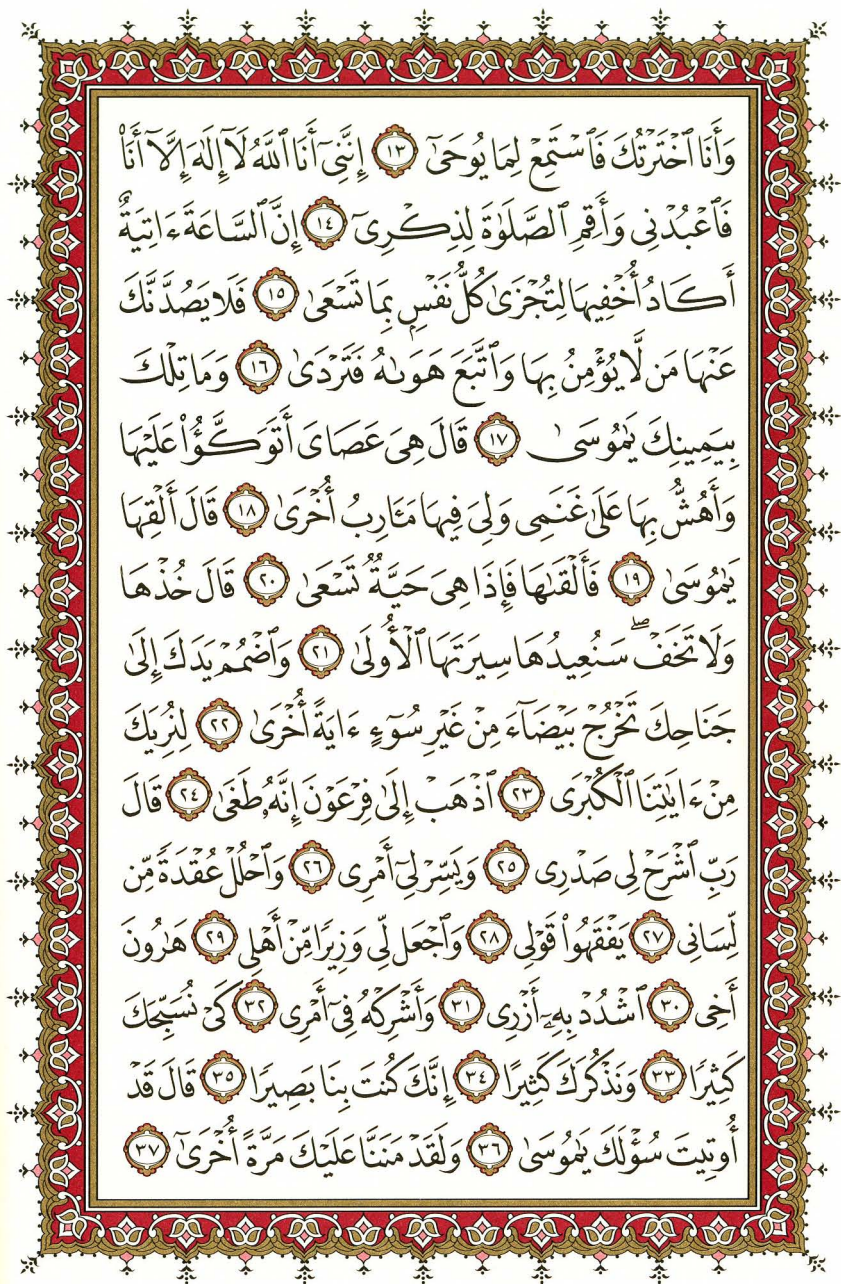 وَأَنَا ٱخْتَرْتُكَ فَٱسْتَمِعْ لِمَا يُوحَىٰٓ ١٣ إِنَّنِىٓ أَنَا ٱللَّهُ لَآ إِلَٰهَ إِلَّآ أَنَا۠
فَٱعْبُدْنِى وَأَقِمِ ٱلصَّلَوٰةَ لِذِكْرِىٓ ١٤ إِنَّ ٱلسَّاعَةَ ءَاتِيَةٌ
أَكَادُ أُخْفِيهَا لِتُجْزَىٰ كُلُّ نَفْسٍۭ بِمَا تَسْعَىٰ ١٥ فَلَا يَصُدَّنَّكَ
عَنْهَا مَن لَّا يُؤْمِنُ بِهَا وَٱتَّبَعَ هَوَىٰهُ فَتَرْدَىٰ ١٦ وَمَا تِلْكَ
بِيَمِينِكَ يَٰمُوسَىٰ ١٧ قَالَ هِىَ عَصَاىَ أَتَوَكَّؤُا۟ عَلَيْهَا
وَأَهُشُّ بِهَا عَلَىٰ غَنَمِى وَلِىَ فِيهَا مَـَٔارِبُ أُخْرَىٰ ١٨ قَالَ أَلْقِهَا
يَٰمُوسَىٰ ١٩ فَأَلْقَىٰهَا فَإِذَا هِىَ حَيَّةٌ تَسْعَىٰ ٢٠ قَالَ خُذْهَا
وَلَا تَخَفْ ۖ سَنُعِيدُهَا سِيرَتَهَا ٱلْأُولَىٰ ٢١ وَٱضْمُمْ يَدَكَ إِلَىٰ
جَنَاحِكَ تَخْرُجْ بَيْضَآءَ مِنْ غَيْرِ سُوٓءٍ ءَايَةً أُخْرَىٰ ٢٢ لِنُرِيَكَ
مِنْ ءَايَٰتِنَا ٱلْكُبْرَى ٢٣ ٱذْهَبْ إِلَىٰ فِرْعَوْنَ إِنَّهُۥ طَغَىٰ ٢٤ قَالَ
رَبِّ ٱشْرَحْ لِى صَدْرِى ٢٥ وَيَسِّرْ لِىٓ أَمْرِى ٢٦ وَٱحْلُلْ عُقْدَةً مِّن
لِّسَانِى ٢٧ يَفْقَهُوا۟ قَوْلِى ٢٨ وَٱجْعَل لِّى وَزِيرًا مِّنْ أَهْلِى ٢٩ هَٰرُونَ
أَخِى ٣٠ ٱشْدُدْ بِهِۦٓ أَزْرِى ٣١ وَأَشْرِكْهُ فِىٓ أَمْرِى ٣٢ كَىْ نُسَبِّحَكَ
كَثِيرًا ٣٣ وَنَذْكُرَكَ كَثِيرًا ٣٤ إِنَّكَ كُنتَ بِنَا بَصِيرًا ٣٥ قَالَ قَدْ
أُوتِيتَ سُؤْلَكَ يَٰمُوسَىٰ ٣٦ وَلَقَدْ مَنَنَّا عَلَيْكَ مَرَّةً أُخْرَىٰٓ ٣٧